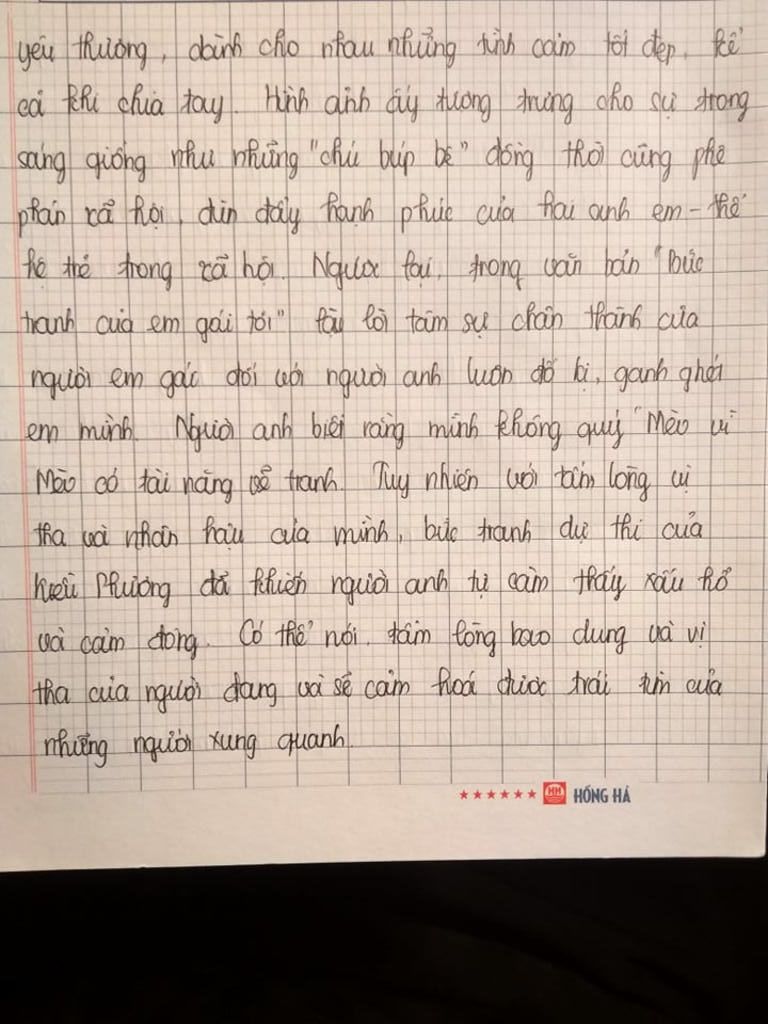 yêu thương, dành cho nhau những tình cảm tốt đẹp, kể
cả khi chia tay. Hình ảnh ấy tượng trưng cho sự trong
sáng giống như những "chú búp bê" đồng thời cũng phê
phán xã hội, dùn đẩy hạnh phúc của hai anh em - thế
hệ trẻ trong xã hội. Ngược lại, trong văn bản "Bức
tranh của em gái tôi" lại lời tâm sự chân thành của
người em gác đối với người anh luôn đố kị, ganh ghét
em mình. Người anh biết rằng mình không quý "Mèo vì
Mèo có tài năng vẽ tranh. Tuy nhiên với tấm lòng vị
tha và nhân hậu của mình, bức tranh dự thi của
Kiều Phương đã khiến người anh tự cảm thấy xấu hổ
và cảm động. Có thể nói, tấm lòng bao dung và vị
tha của người đang và sẽ cảm hoá được trái tim của
những người xung quanh.
HH HỒNG HÀ